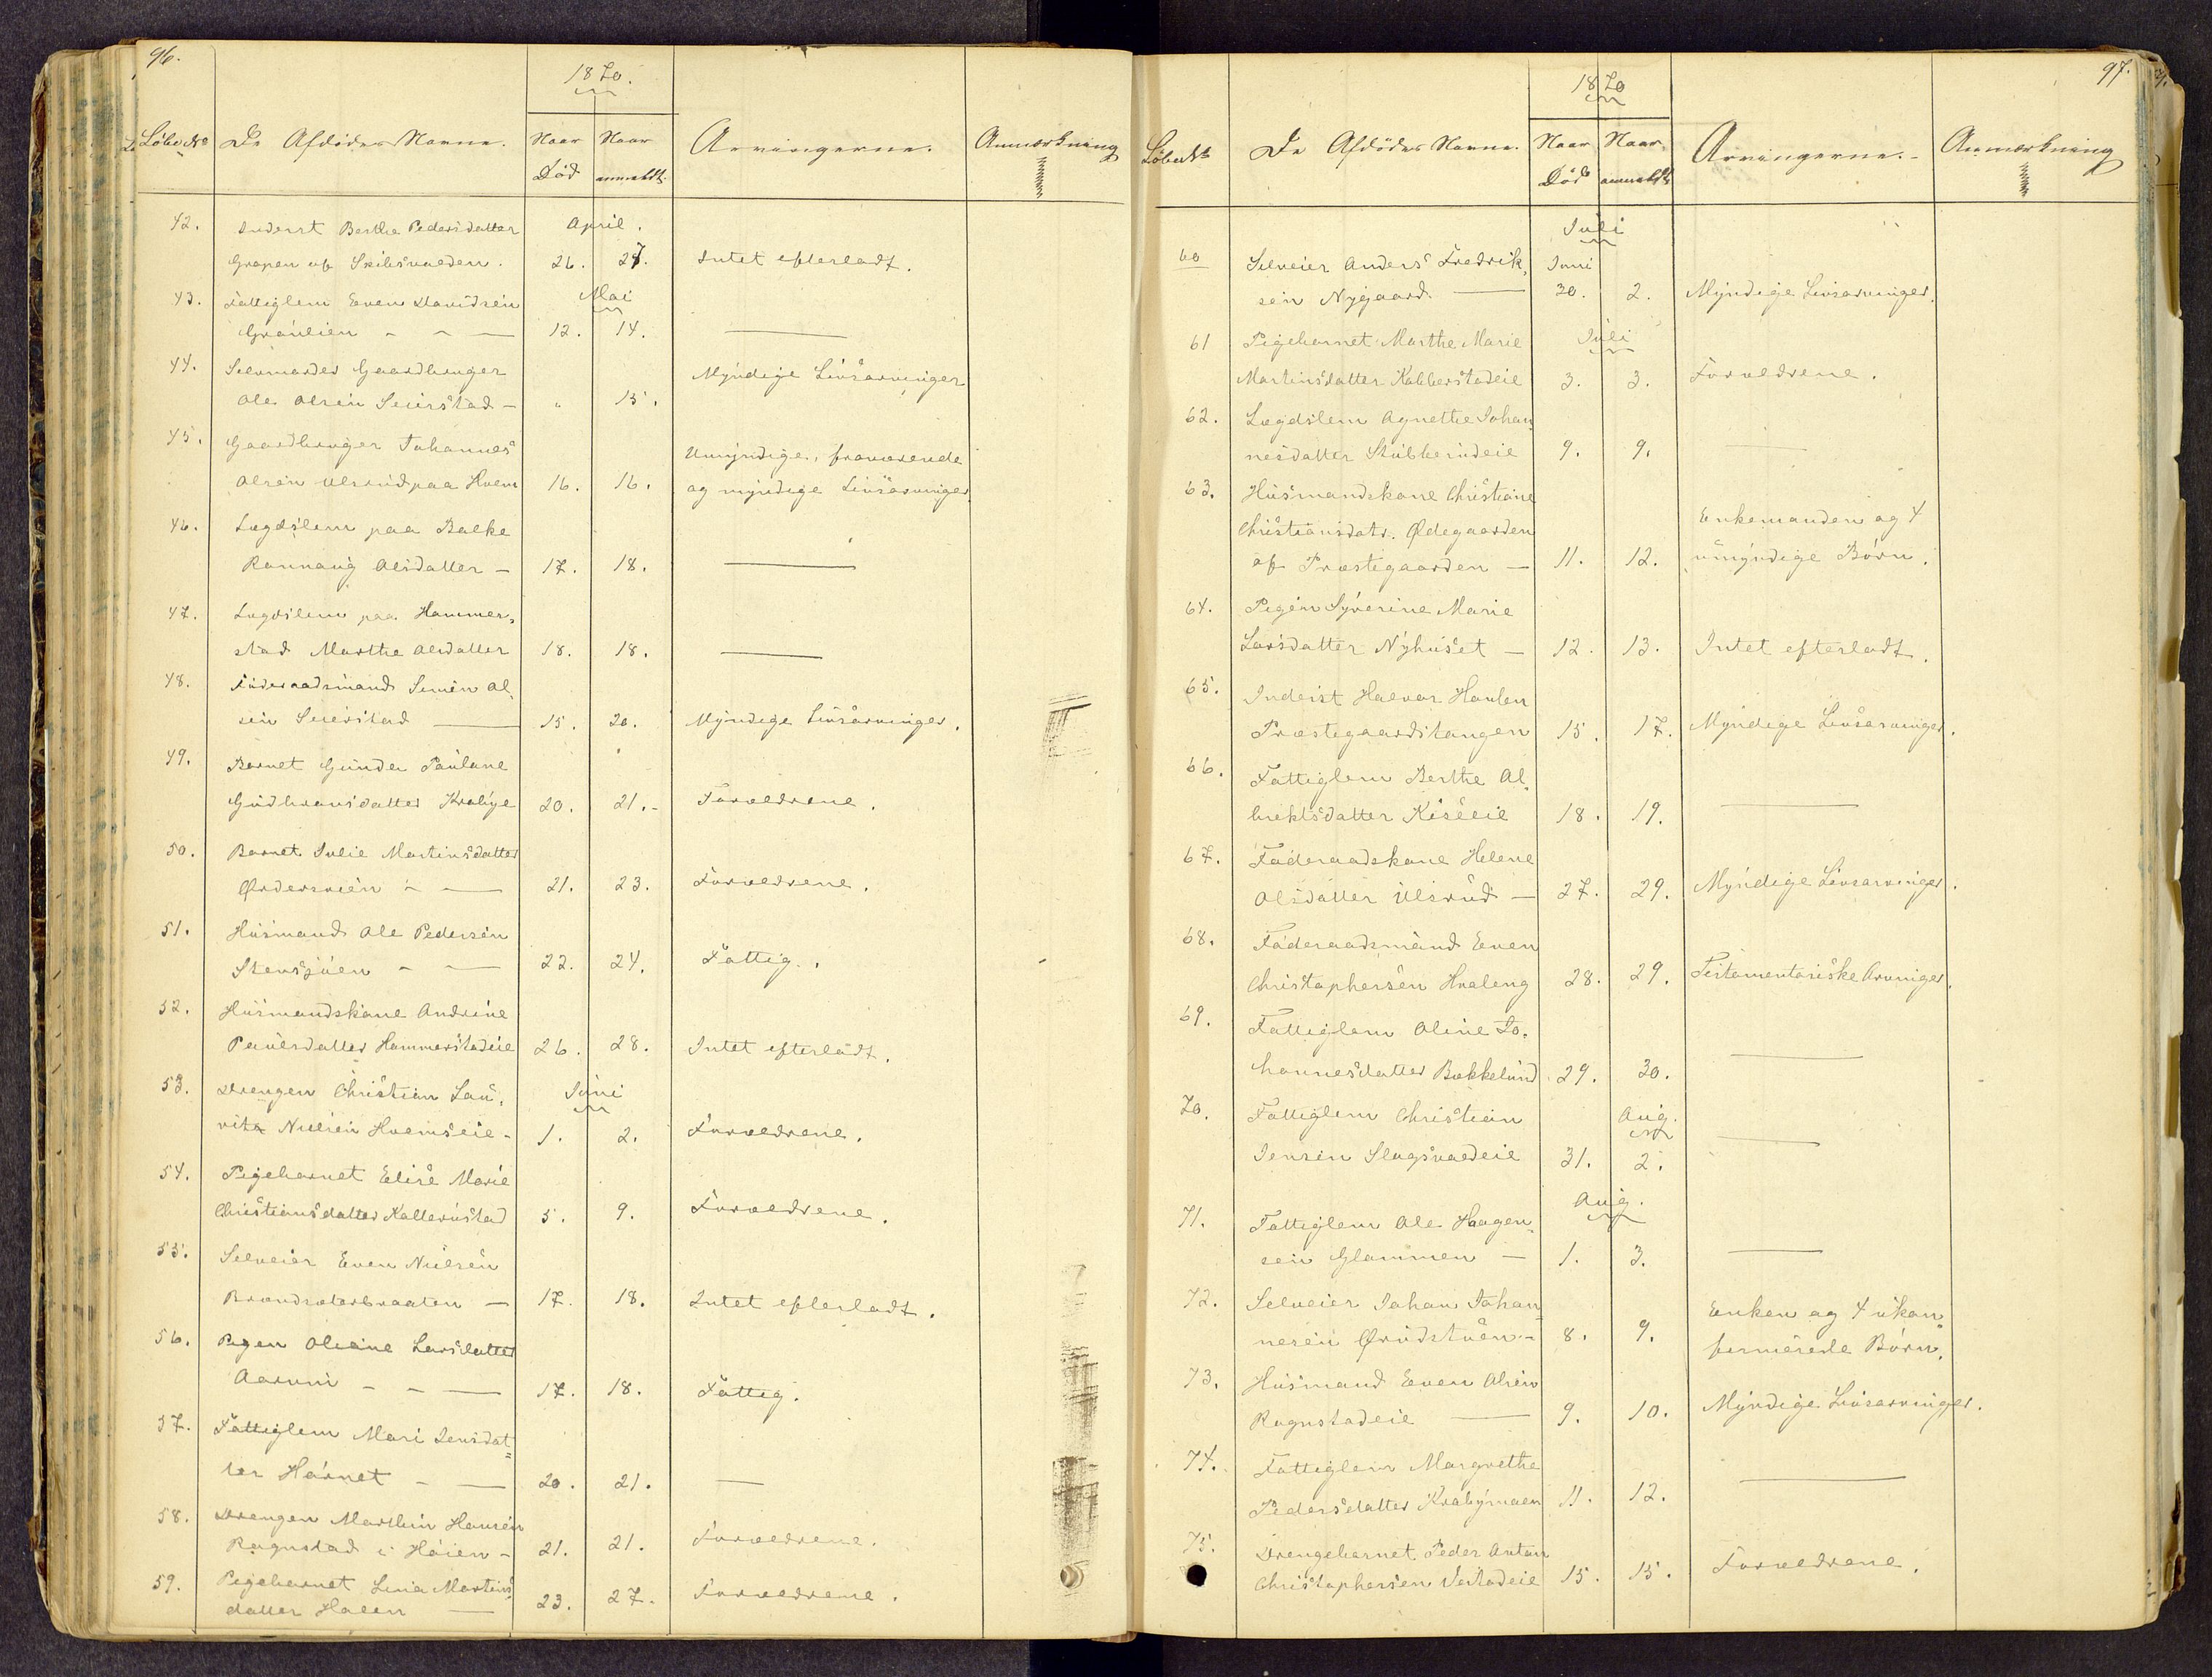 96.
1870.
Løbe No De Afdødes Navne. Naar Død Naar anmeldt. Arvingerne. Anmærkning
42. Inderst Berthe Pedersdatter April.
Grapen af Skibsvolden. 26. 27. Intet efterladt.
43. Fattiglem Even Davidsen Mai
Graulien - - — 12. 14. —
44. Selvmorder Gaardbruger Myndige Livsarvinger
Ole Olsen Seierstad - " 15.
45. Gaardbruger Johannes Umyndige, fraværende
Olsen Ulsrud paa Hvem 16. 16. og myndige Livsarvinger.
46. Lægdslem paa Balke
Rannaug Olsdatter - 17. 18. —
47. Lægdslem paa Hammer-
stad Marthe Olsdatter 18. 18. —
48. Føderaadsmand Simen Ol-
sen Seierstad — 15. 20. Myndige Livsarvinger.
49. Barnet Gunda Paulane
Gudbransdatter Krabye 20. 21.- Forældrene.
50. Barnet Julie Martinsdatter
- — 21. 23. Forældrene.
51. Husmand Ole Pedersen
Stensjøen - — 22. 24. Fattig.
52. Husmandskone Andrine
Paulsdatter Hammerstadeie 26. 28. Intet efterladt.
53. Drengen Christian Lau- Juni
ritz Nilsen Hvemseie - 1. 2. Forældrene.
54. Pigebarnet Elise Marie
Christiansdatter Kallerustad 5. 9. Forældrene.
55. Selveier Even Nilsen
Brandsæterbraaten — 17. 18. Intet efterladt.
56. Pigen Oleane Larsdatter
- - — 17. 18. Fattig.
57. Fattiglem Mari Jensdat=
ter - — 20. 21. —
58. Drengen Marthin Hansen
Rognstad i Høien - 21. 21. Forældrene.
59. Pigebarnet Lina Martins
datter — 23. 27. Forældrene.
97.
1870
Løbe No De Afdødes Navne. Naar Død Naar anmeldt Arvingerne. Anmærkning
Juli
60 Selveier Anders Fredrik- Juni
sen Nygaard. — 30. 2. Myndige Livsarvinger.
61 Pigebarnet Marthe Marie Juli
Martinsdatter Kabberstadeie 3. 3. Forældrene.
62. Lægdslem Agnethe Johan-
nesdatter Stubberudeie 9. 9. —
63. Husmandskone Christiane
Christiansdatr. Ødegaarden Enkemanden og 4
af Præstegaarden — 11. 12. umyndige Børn.
64. Pigen Syverine Marie
Larsdatter Nyhuset — 12. 13. Intet efterladt.
65. Inderst Halvor
Præstegaardstangen 15. 17. Myndige Livsarvinger.
66. Fattiglem Berthe Al-
brektsdatter Kiseeie 18. 19. —
67. Føderaadskone Helene
Olsdatter Ulsrud — 27. 29. Myndige Livsarvinger.
68. Føderaadsmand Even
Christophersen 28. 29. Testamentariske Arvinger.
69. Fattiglem Oline Jo-
hannesdatter Bækkelund 29. 30. —
70. Fattiglem Christian Aug.
Jensen 31. 2. —
71. Fattiglem Ole Haagen- Aug.
sen Glammen — 1. 3. —
72. Selveier Johan Johan- Enken og 4 ukon-
nesen Ørudstuen - 8. 9. firmerede Børn.
73. Husmand Even Olsen Myndige Livsarvinger.
Rognstadeie — 9. 10.
74. Fattiglem Margrethe
Pedersdatter Krabymoen 11. 12. —
75. Drengebarnet Peder Anton
Christophersen 15. 15. Forældrene.